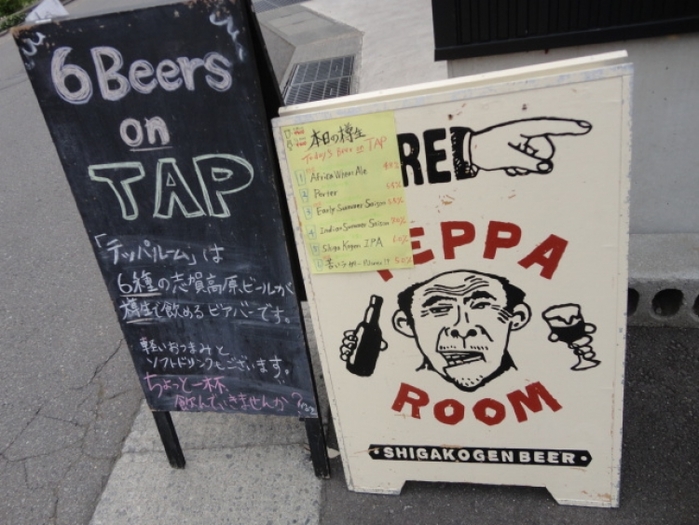 6 Beers
on
TAP
「テッパルーム」は
6種の志賀高原ビールが
樽生で飲めるビアバーです。
軽いおつまみと
ソフトドリンクもございます。
ちょっと一杯、
飲んでいきませんか?
本日の樽生
Today's Beer on TAP
1 Africa Wheat Ale
2 Porter
3 Early Summer Saison
4 Indian Summer Saison
5 Shiga Kogen IPA
6
RED
TEPPA
ROOM
SHIGAKOGEN BEER